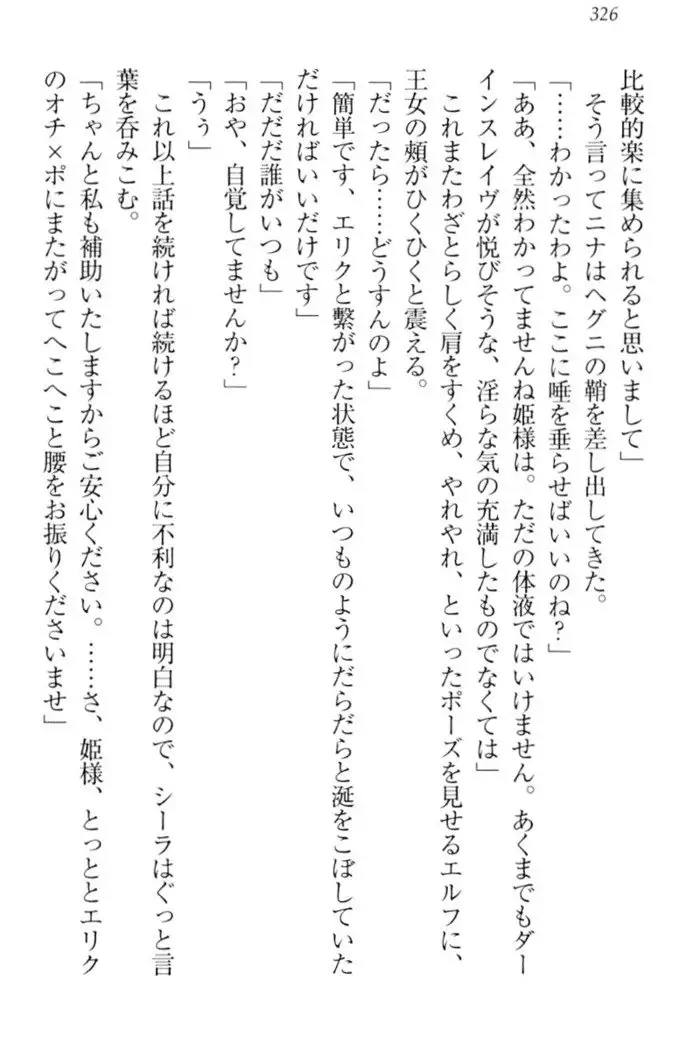 326
比較的楽に集められると思いまして」
そう言ってニナはヘグニの鞘を差し出してきた。
「……わかったわよ。ここに唾を垂らせばいいのね?」
「ああ、全然わかってませんね姫様は。ただの体液ではいけません。あくまでもダー
インスレイヴが悦びそうな、淫らな気の充満したものでなくては」
これまたわざとらしく肩をすくめ、やれやれ、といったポーズを見せるエルフに、
王女の頰がひくひくと震える。
「だったら……どうすんのよ」
「簡単です、エリクと繋がった状態で、いつものようにだらだらと涎をこぼしていた
だければいいだけです」
「だだだ誰がいつも」
「おや、自覚してませんか?」
「うぅ」
これ以上話を続ければ続けるほど自分に不利なのは明白なので、シーラはぐっと言
葉を呑みこむ。
「ちゃんと私も補助いたしますからご安心ください。……さ、姫様、とっととエリク
のオチ×ポにまたがってへこへこと腰をお振りくださいませ」